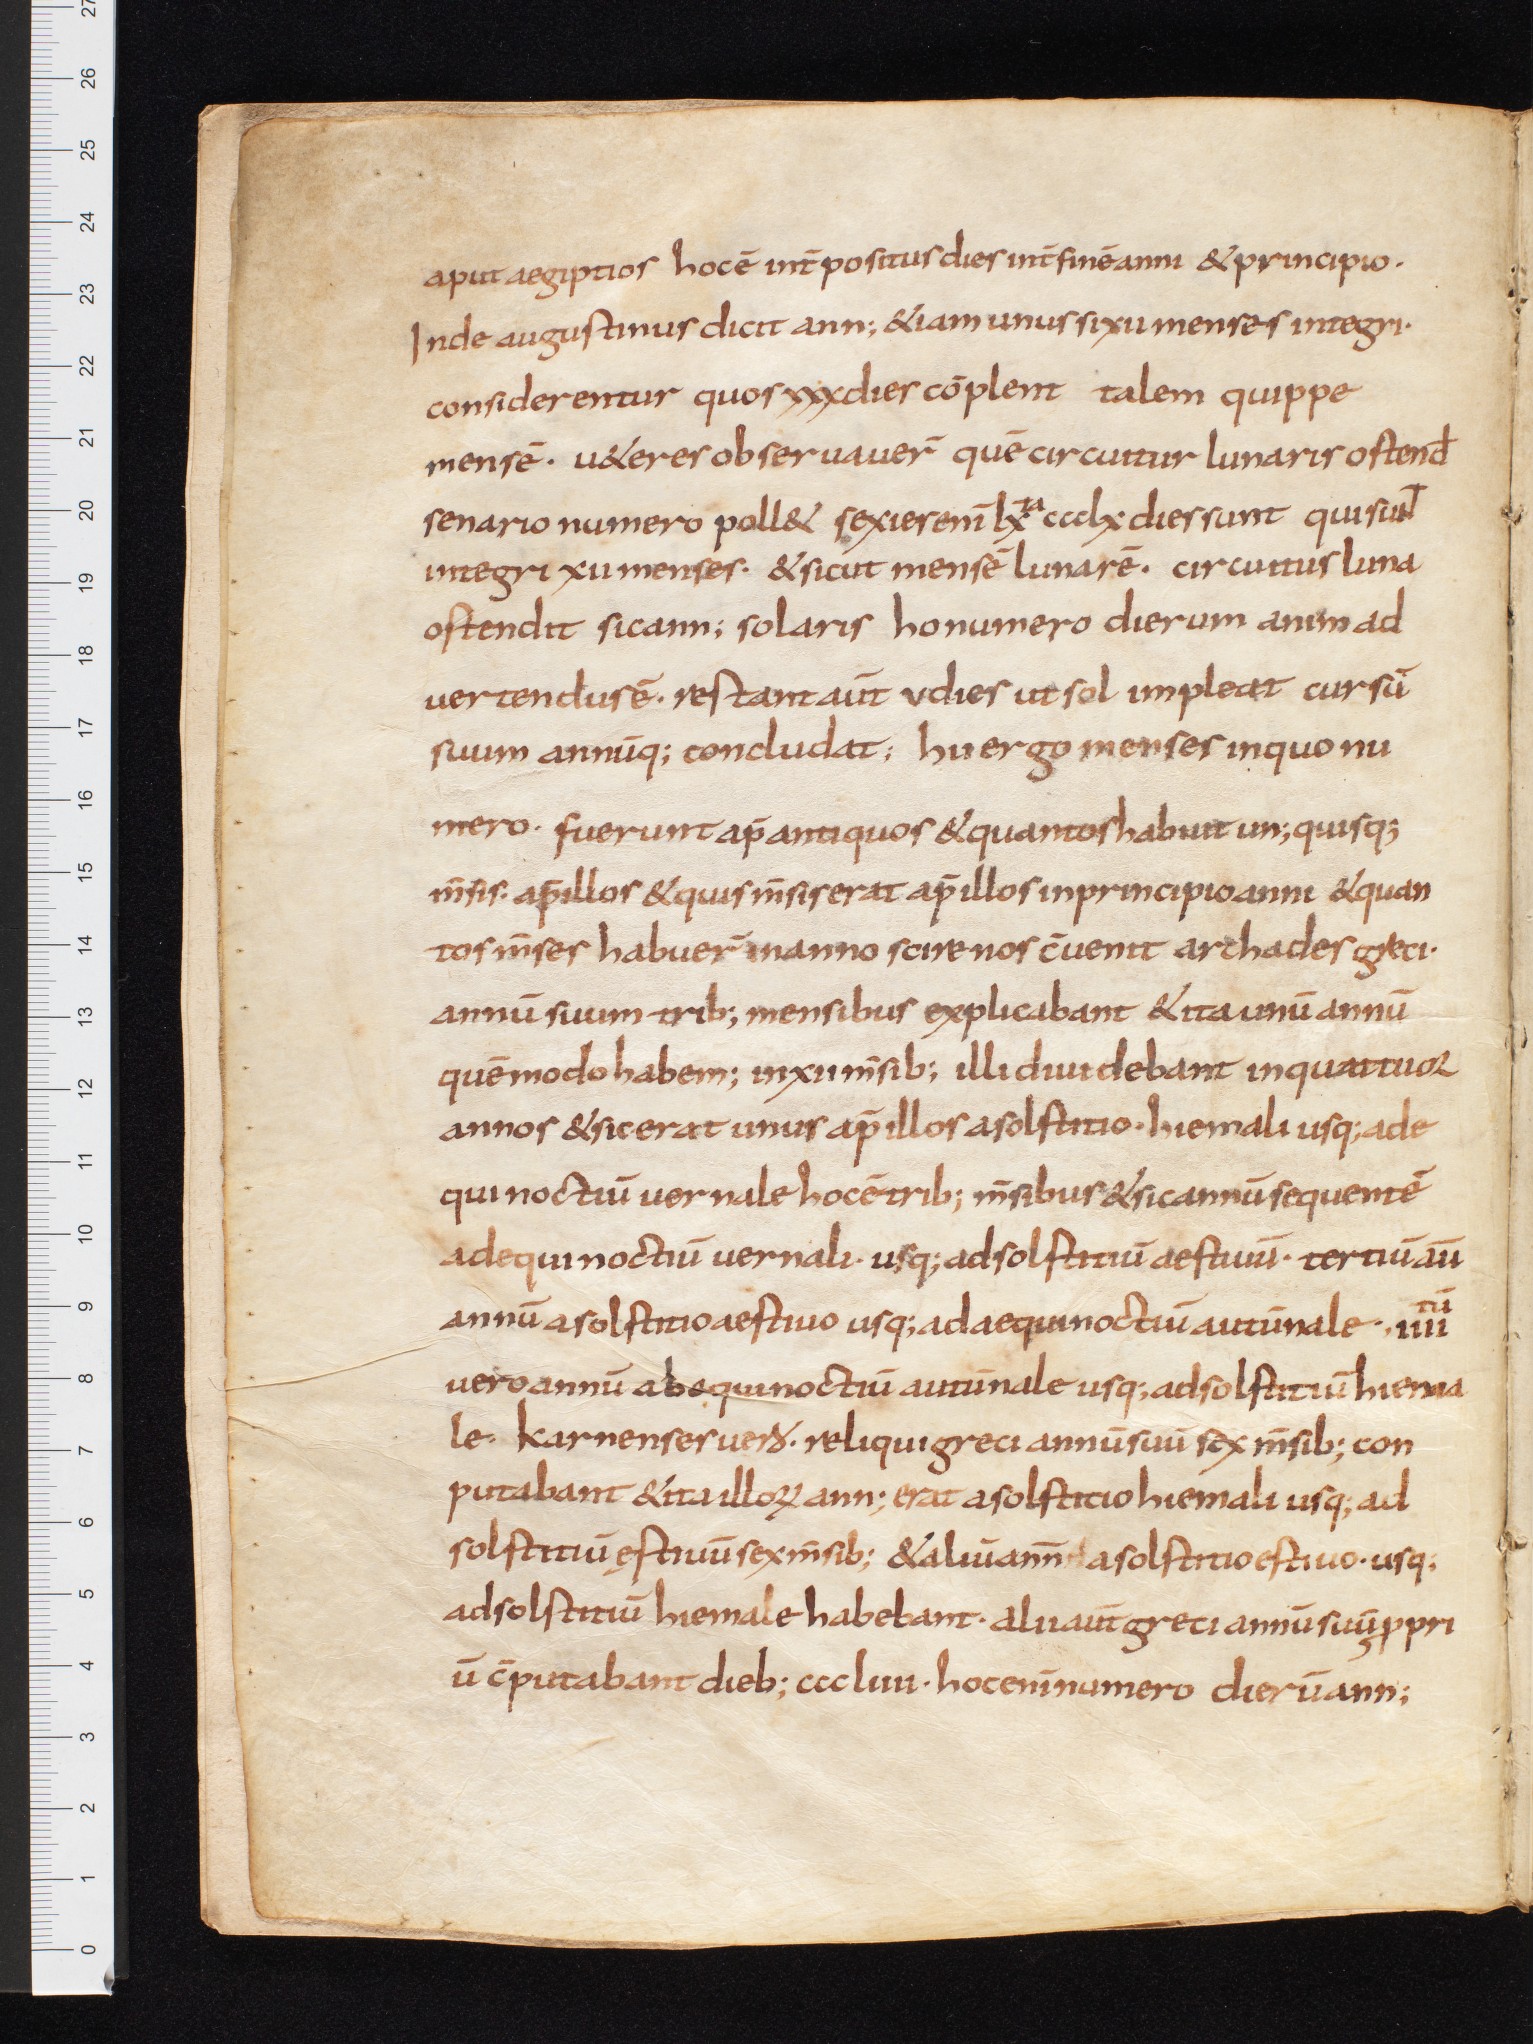 aput aegiptios hoc ē int̄positus dies int̄ finē anni & principio.
Inde augustinus dicit ann; & iam unus si xii menses integri.
considerentur quos xxx dies cōplent talem quippe
mensē. u&eres obseruauer̄ quē circuitur lunaris ostend̄
senario numero poll& sexies eni̅ lx ta ccclx dies sunt qui sunt̄
integri xii menses. & sicut mensē lunarē. circuitus luna
ostendit sic ann; solaris ho numero dierum animad
uertendus ē. restant aūt v dies ut sol impleat cursū
suum annūq; concludat; hii ergo menses in quo nu
mero. fuerunt ap̄ antiquos & quantos habuit un; quisq;
m̄sis. ap̄ illos & quis m̄sis erat ap̄ illos in principio anni & quan
tos m̄ses habuer̄ in anno scire nos c̄uenit archades greci.
annū suum trib; mensibus explicabant & ita unū annū
quē modo habem; in xii m̄sib; illi diuidebant in quattuor
annos & sic erat unus ap̄ illos a solstitio. hiemali usq; ad e
quinoctiū uernale hoc ē trib; m̄sibus & sic annū sequentē
ad equinoctiū uernali. usq; ad solstitiū aestiuū. tertiū aūt
annū a solstitio aestiuo usq; ad aequinoctiū autūnale. iiii tū
uero annū ab equinoctiū autūnale usq; ad solstitiū hiema
le. karnenses uero &. reliqui greci annū suū sex m̄sib; con
putabant & ita illorꝝ ann; erat a solstitio hiemali usq; ad
solstitiū ęstiuū sex m̄sib; & aliū ann̄ a solstitio estiuo. usq;
ad solstitiū hiemale habebant. alii aūt greci annū suū ꝓpri
ū c̄putabant dieb; cccliiii. hoc eni̅ numero dierū ann;